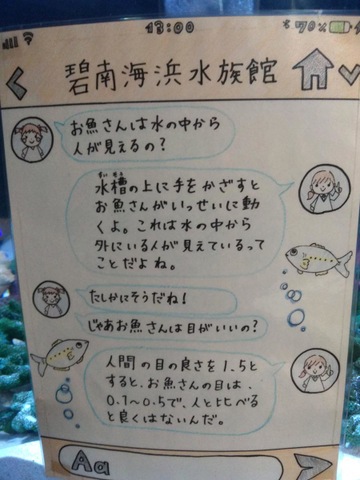 13:00
70%
碧南海浜水族館
お魚さんは水の中から
人が見えるの?
水槽の上に手をかざすと
すいそう
お魚さんがいっせいに動
くよ。これは水の中から
外にいる人が見えているって
ことだよね。
たしかにそうだね!
じゃあお魚さんは目がいいの?
人間の目の良さを1.5と
すると、お魚さんの目は、
0.1~0.5で、人と比べると
良くはないんだ。
Aa